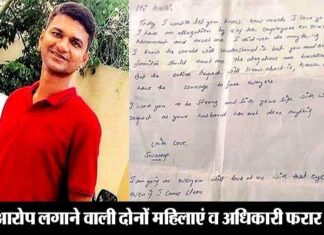 Hi
Today I want to let you know how much I love you
I have an allegation by the employees on
harassment and trust me I did not do anything
I know the world will understand it but you and our
families should trust me. The allegations are baseless
But the entire will know about it, hence I
have the courage to face everyone.
I want you to be strong and live your life with
respect as your husband has not done anything
with Love,
Swaroop
I am going as everyone will look at me with that eye
even if I come clean
आरोप लगाने वाली दोनों महिलाएं व अधिकारी फरार